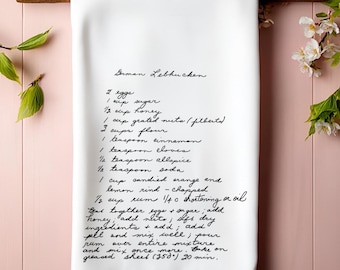 German Lebkuchen
2 eggs
1 cup sugar
1/3 cup honey
1 cup grated nuts (filberts)
3 cups flour
1 teaspoon cinnamon
1 teaspoon cloves
1/2 teaspoon allspice
1/2 teaspoon soda
1 cup candied orange and
lemon rind - chopped
1/3 cup rum 1/4 c shortening or oil
Beat together eggs & sugar, add
honey, add nuts; sift dry
ingredients & add; add
peel and mix well; pour
rum over entire mixture
and mix once more. Bake on
greased sheet (350°) 20 min.